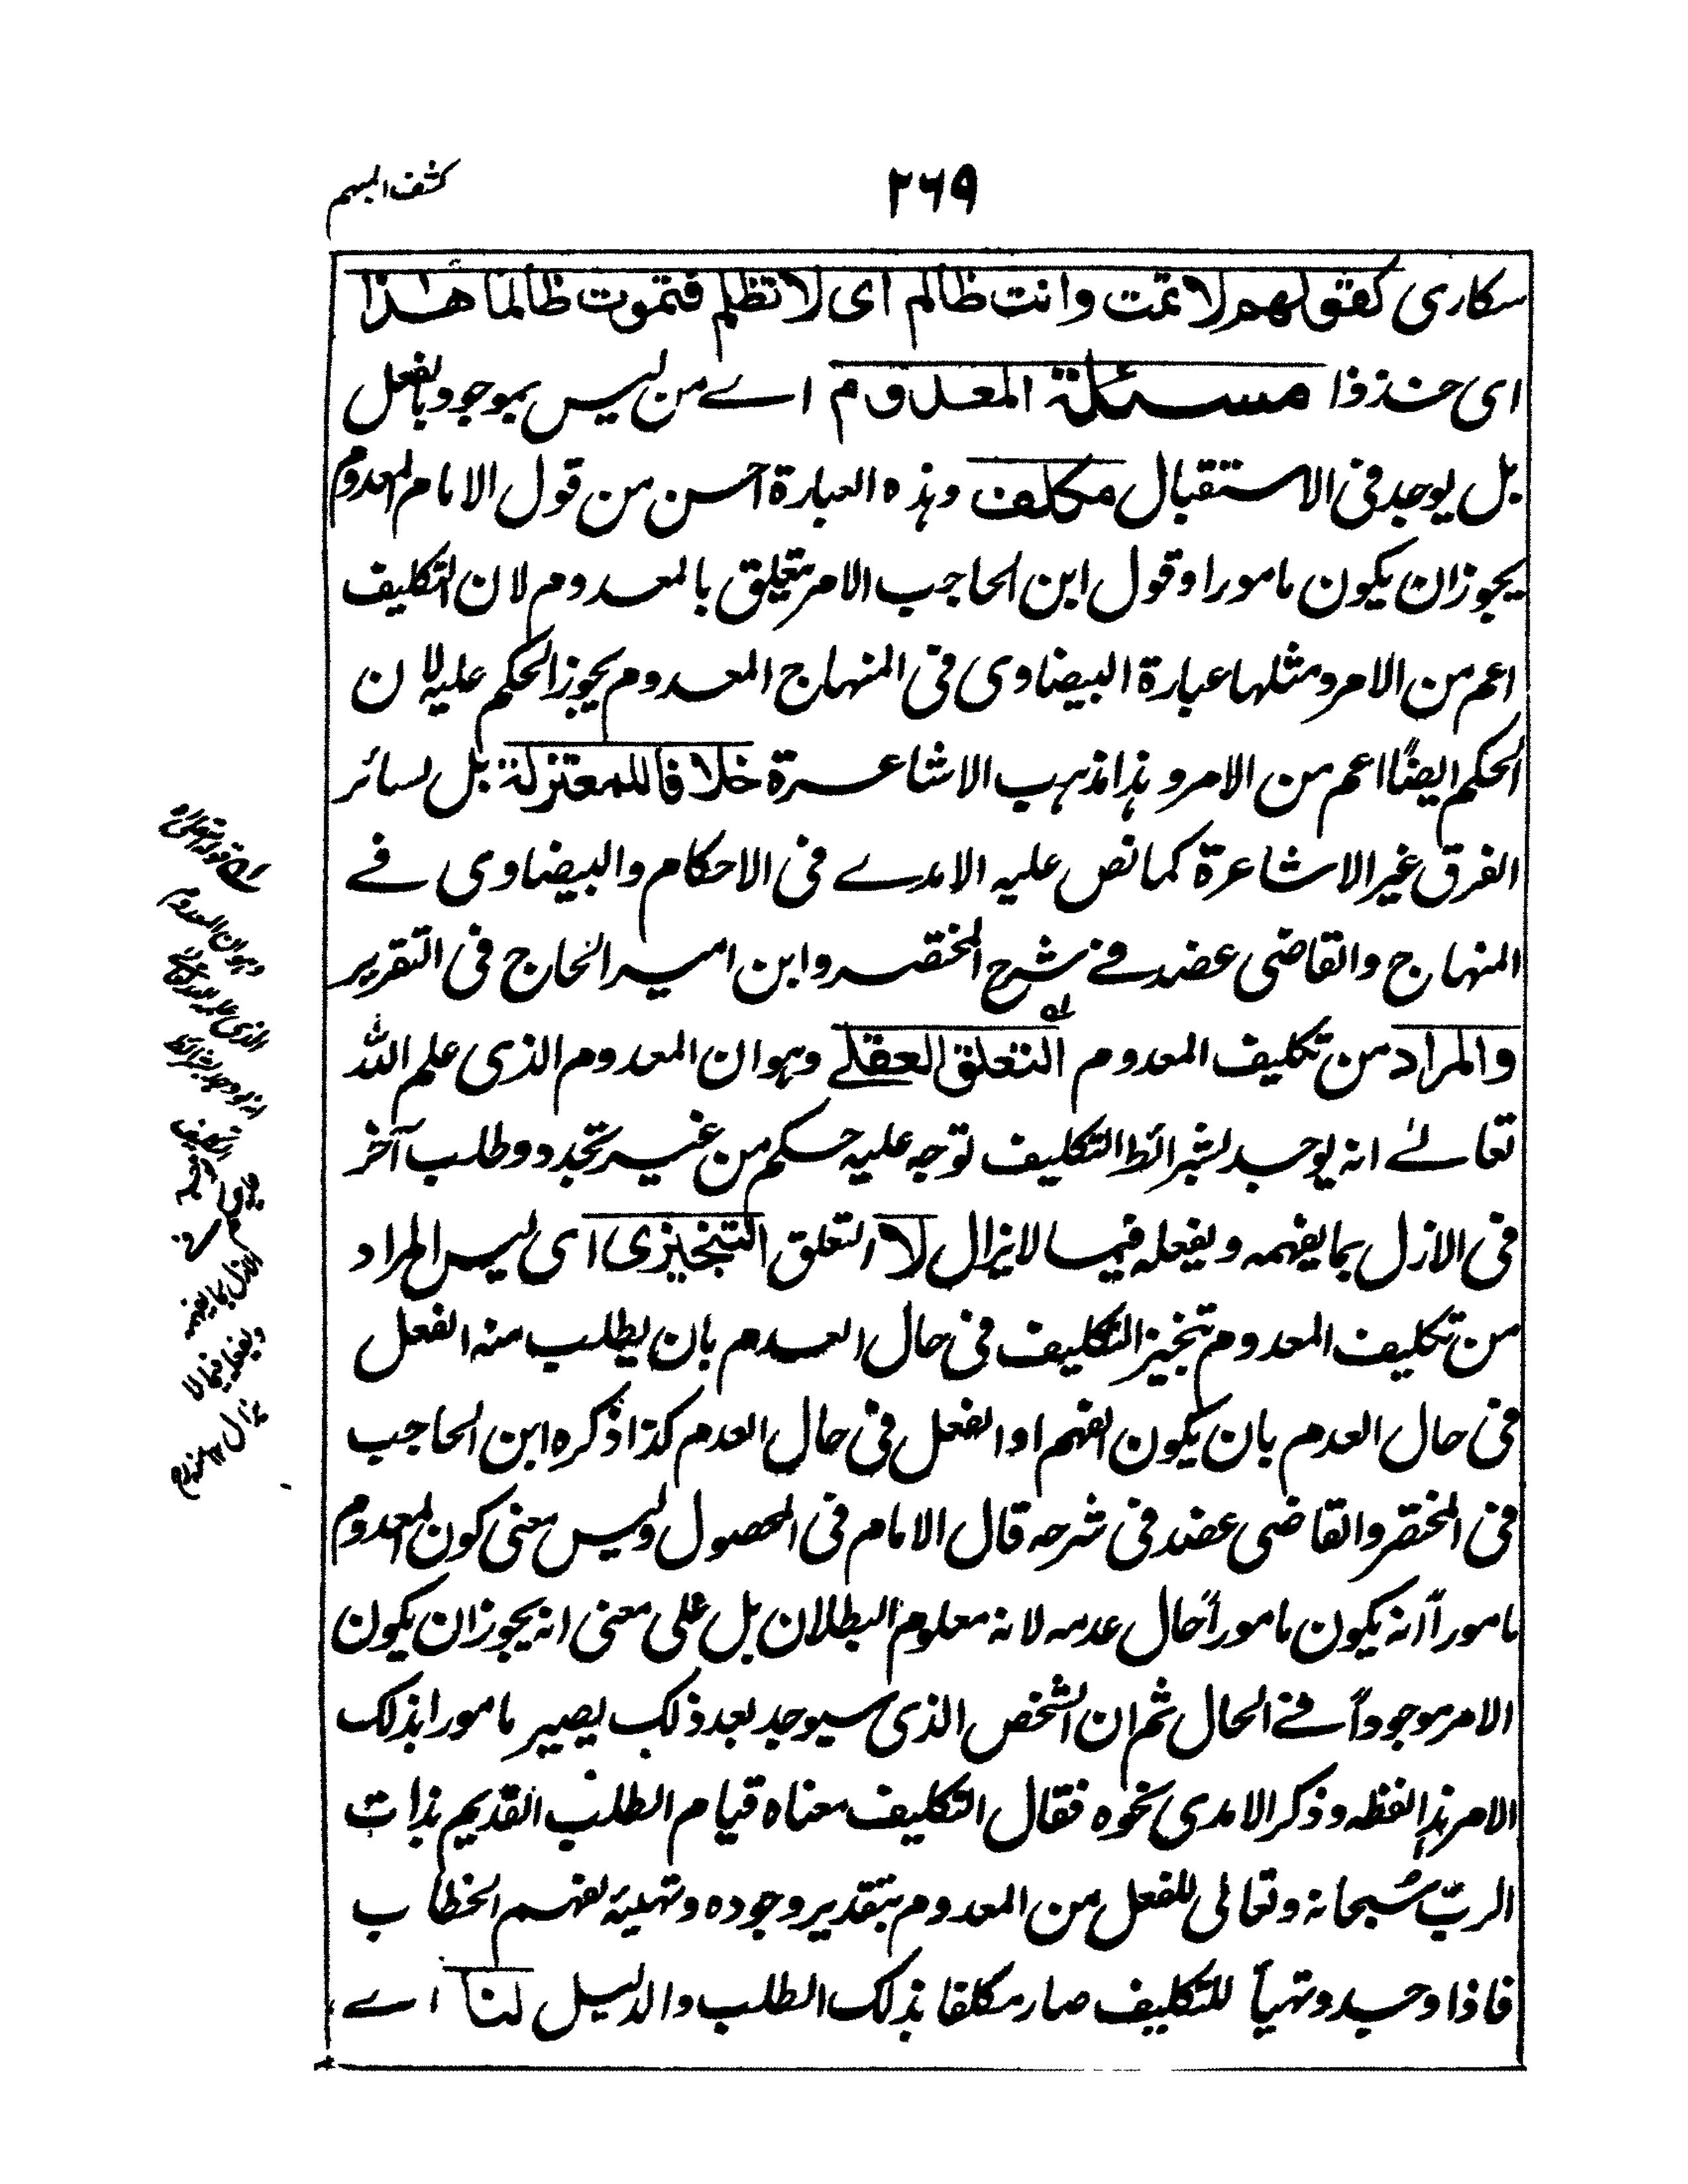 كشف المبهم
٢٦٩
سكارى كقولهم لا تمت وانت ظالم اى لا تظلم فتموت ظالما هذا
اى خذ ذا مسئلة المعدوم اے من ليس بموجود بالفعل
بل يوجد فى الاستقبال مكلف وهذه العبارة احسن من قول الامام المعدوم
يجوز ان يكون مامورا وقول ابن الحاجب الامر يتعلق بالمعدوم لان التكليف
اعم من الامر ومثلها عبارة البيضاوى فى المنهاج المعدوم يجوز الحكم عليه لان
الحكم ايضًا اعم من الامر وهذا مذهب الاشاعرة خلافا للمعتزلة بل لسائر
الفرق غير الاشاعرة كما نص عليه الامدے فى الاحكام والبيضاوى فے
المنهاج والقاضى عضد فے شرح المختصر وابن امير الحاج فى التقرير
والمراد من تكليف المعدوم التعلق العقلے وهو ان المعدوم الذى علم الله
تعالىٰ انه يوجد بشرائط التكليف توجه عليه حكم من غير تجدد وطلب آخر
فى الازل بما يفهمه ويفعله فيما لا يزال لا التعلق التنجيزى اى ليس المراد
من تكليف المعدوم تنجيز التكليف فى حال العدم بان يطلب منه الفعل
فى حال العدم بان يكون الفهم او الفعل فى حال العدم كذا ذكره ابن الحاجب
فى المختصر والقاضى عضد فى شرحه قال الامام فى المحصول وليس معنى كون المعدوم
ماموراً انه يكون ماموراً حال عدمه لانه معلوم البطلان بل على معنى انه يجوز ان يكون
الامر موجوداً فے الحال ثم ان الشخص الذى سيوجد بعد ذلك يصير مامورا بذلك
الامر هذا لفظه وذكر الامدى نحوه فقال التكليف معناه قيام الطلب القديم بذات
الربّ سُبحانه وتعالى للفعل من المعدوم بتقدير وجوده وتهيئه لفهم الخطاب
فاذا وجد وتهيأ للتكليف صار مكلفا بذلك الطلب والدليل لنا اے
وهو ان المعدوم
الذى علم الله تعالى
انه يوجد بشرائط
التكليف
الازل بما يفهمه
ويفعله فيما لا
يزال